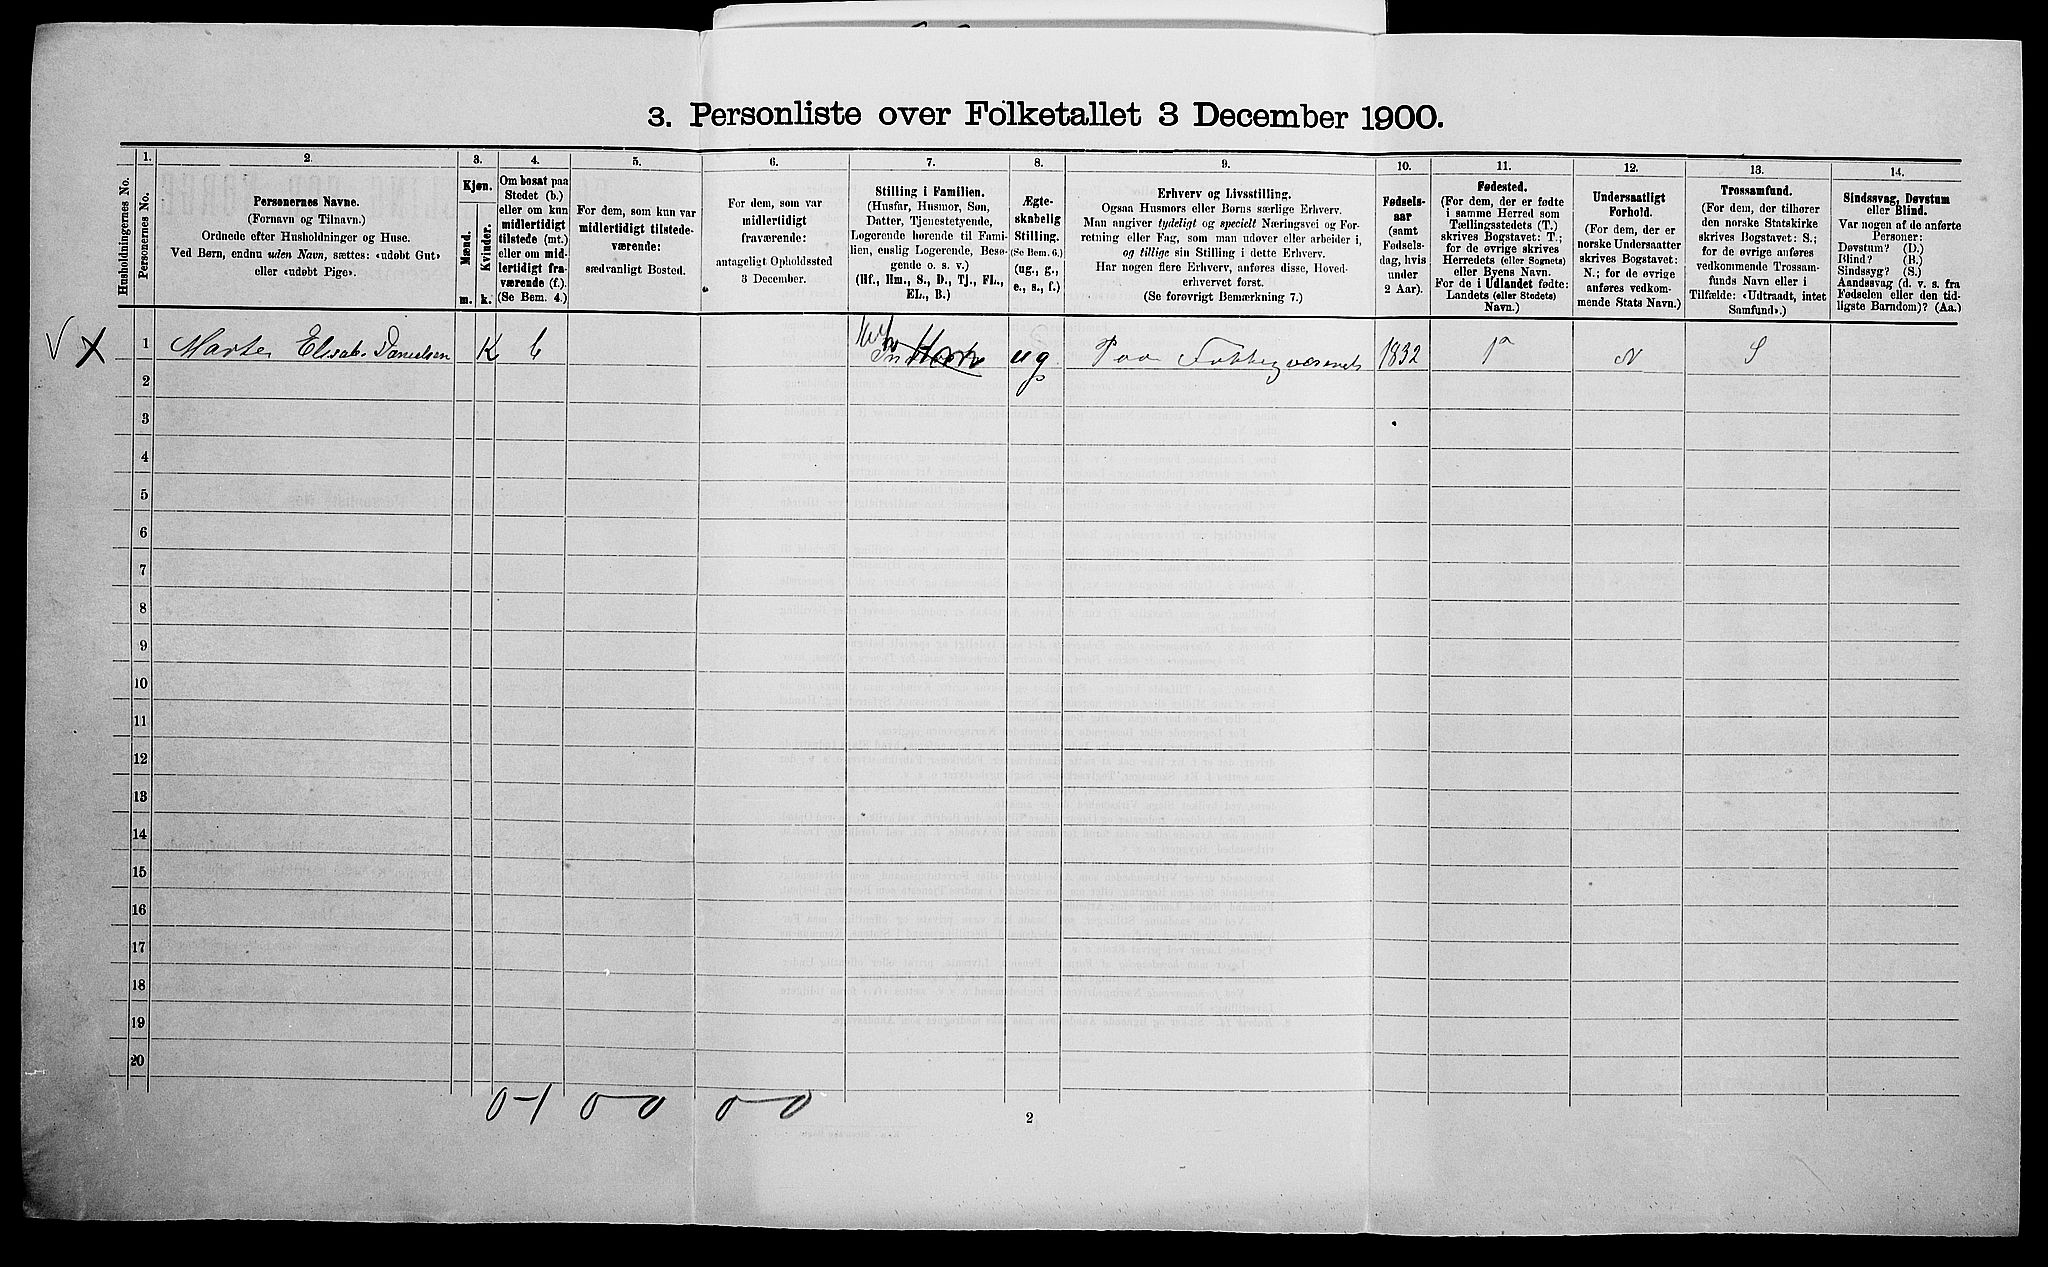 3. Personliste over Folketallet 3 December 1900.
Husholdningernes No.
1.
Personernes No.
2.
Personernes Navne.
(Fornavn og Tilnavn.)
Ordnede efter Husholdninger og Huse.
Ved Børn, endnu uden Navn, sættes: «udøbt Gut»
eller «udøbt Pige».
3.
Kjøn.
Mænd.
Kvinder.
m.
k.
4.
Om bosat paa
Stedet (b.)
eller om kun
midlertidigt
tilstede (mt.)
eller om mid-
lertidigt fra-
værende (f.).
(Se Bem. 4.)
5.
For dem, som kun var
midlertidigt tilstede-
værende:
sædvanligt Bosted.
6.
For dem, som var
midlertidigt
fraværende:
antageligt Opholdssted
3 December.
7.
Stilling i Familien.
(Husfar, Husmor, Søn,
Datter, Tjenestetyende,
Logerende hørende til Fami-
lien, enslig Logerende, Besø-
gende o. s. v.)
(Hf., Hm., S., D., Tj., FL.,
EL., B.)
8.
Ægte-
skabelig
Stilling.
(Se Bem. 6.)
(ug., g.,
e., s., f.)
9.
Erhverv og Livsstilling.
Ogsaa Husmors eller Børns særlige Erhverv.
Man angiver tydeligt og specielt Næringsvei og For-
retning eller Fag, som man udøver eller arbeider i,
og tillige sin Stilling i dette Erhverv.
Har nogen flere Erhverv, anføres disse, Hoved-
erhvervet først.
(Se forøvrigt Bemærkning 7.)
10.
Fødsels-
aar
(samt
Fødsels-
dag, hvis
under
2 Aar).
11.
Fødested.
(For dem, der er fødte
i samme Herred som
Tællingsstedets (T.)
skrives Bogstavet: T.;
for de øvrige skrives
Herredets (eller Sognets)
eller Byens Navn.
For de i Udlandet fødte:
Landets (eller Stedets)
Navn.)
12.
Undersaatligt
Forhold.
(For dem, der er
norske Undersaatter
skrives Bogstavet:
N.; for de øvrige
anføres vedkom-
mende Stats Navn.)
13.
Trossamfund.
(For dem, der tilhører
den norske Statskirke
skrives Bogstavet: S.;
for de øvrige anføres
vedkommende Trossam-
funds Navn eller i
Tilfælde: «Udtraadt, intet
Samfund».)
14.
Sindssvag, Døvstum
eller Blind.
Var nogen af de anførte
Personer:
Døvstum? (D.)
Blind? (B.)
Sindssyg? (S.)
Aandssvag (d. v. s. fra
Fødselen eller den tid-
ligste Barndom)? (Aa.)
1 Marte Elisab. Danielsen K b ug Paa Fattigvæsenet 1832 T N S
2
3
4
5
6
7
8
9
10
11
12
13
14
15
16
17
18
19
20
0-1 0-0 0-0
2